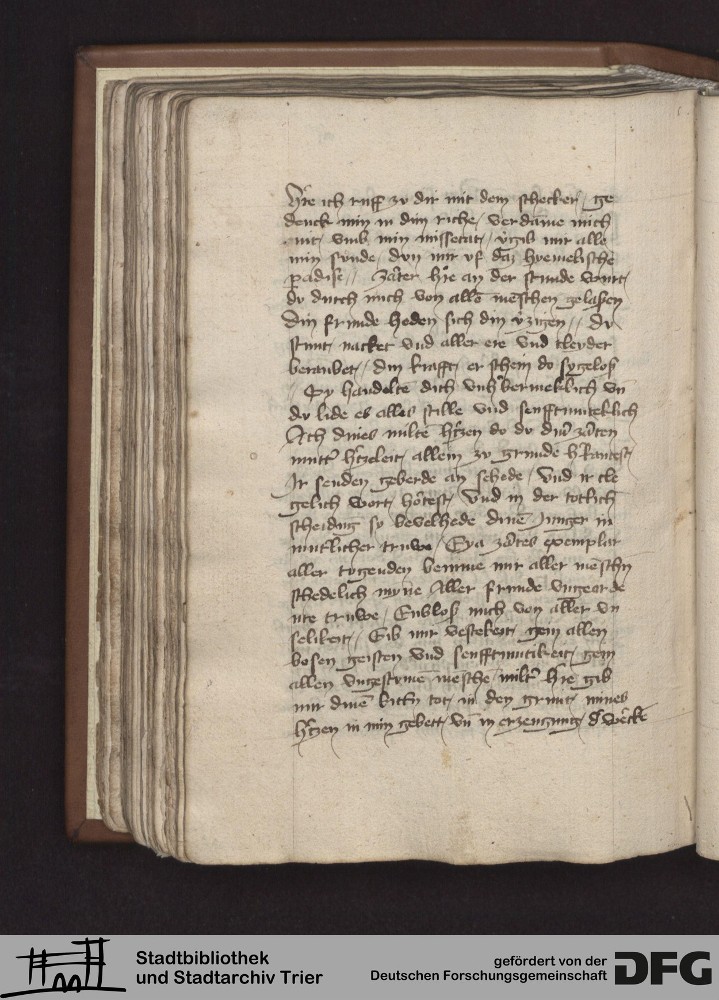 h̓re ich ruff zv dir mit dem schecker / ge
denck min in dim riche / verdāme mich
nit / vmb min missetat / v̓gib mir alle
min sunde / dvn mir vf daz hyemelische
padise // Zarter h̓re an der stunde wurt
dv durch mich von allē meschen gelaßen
Din frunde heden sich din v̓zigen // dv
stunt nacket vnd aller ere vnd cleyder
beraubet / din krafft er schein do sygeloß
Sy handeltē dich vnbermeklich vn̄
dv lide es alles stille vnd senfftmuteklich
Ach dines miltē h̓tzen do dv din̄ zartē
mutt̓ h̓tzeleit allein zv grunde bekantest
Ir senden geberde an sehede / vnd ir cle
gelich wort hortest / vnd in der totlich
scheidūg sy bevelhede dinē Junger in
mutlicher truwe / Eya zartes exemplar
aller tvgenden benime mir aller meschn
schedelich myne Aller frunde vngeorde
nte truwe / Enbloß mich von aller vn
selikeit / Gib mir vestekeit gein allen
bosen geisten vnd senfftmutikeit gein
allen vngestumē mesche / milt̓ h̓re gib
mir dinē bittn tot in den grunt mines
h̓tzen in min gebett / vn̄ in erzeugung d̓ wercke
Stadtbibliothek
und Stadtarchiv Trier
gefördert von der
Deutschen Forschungsgemeinschaft
DFG